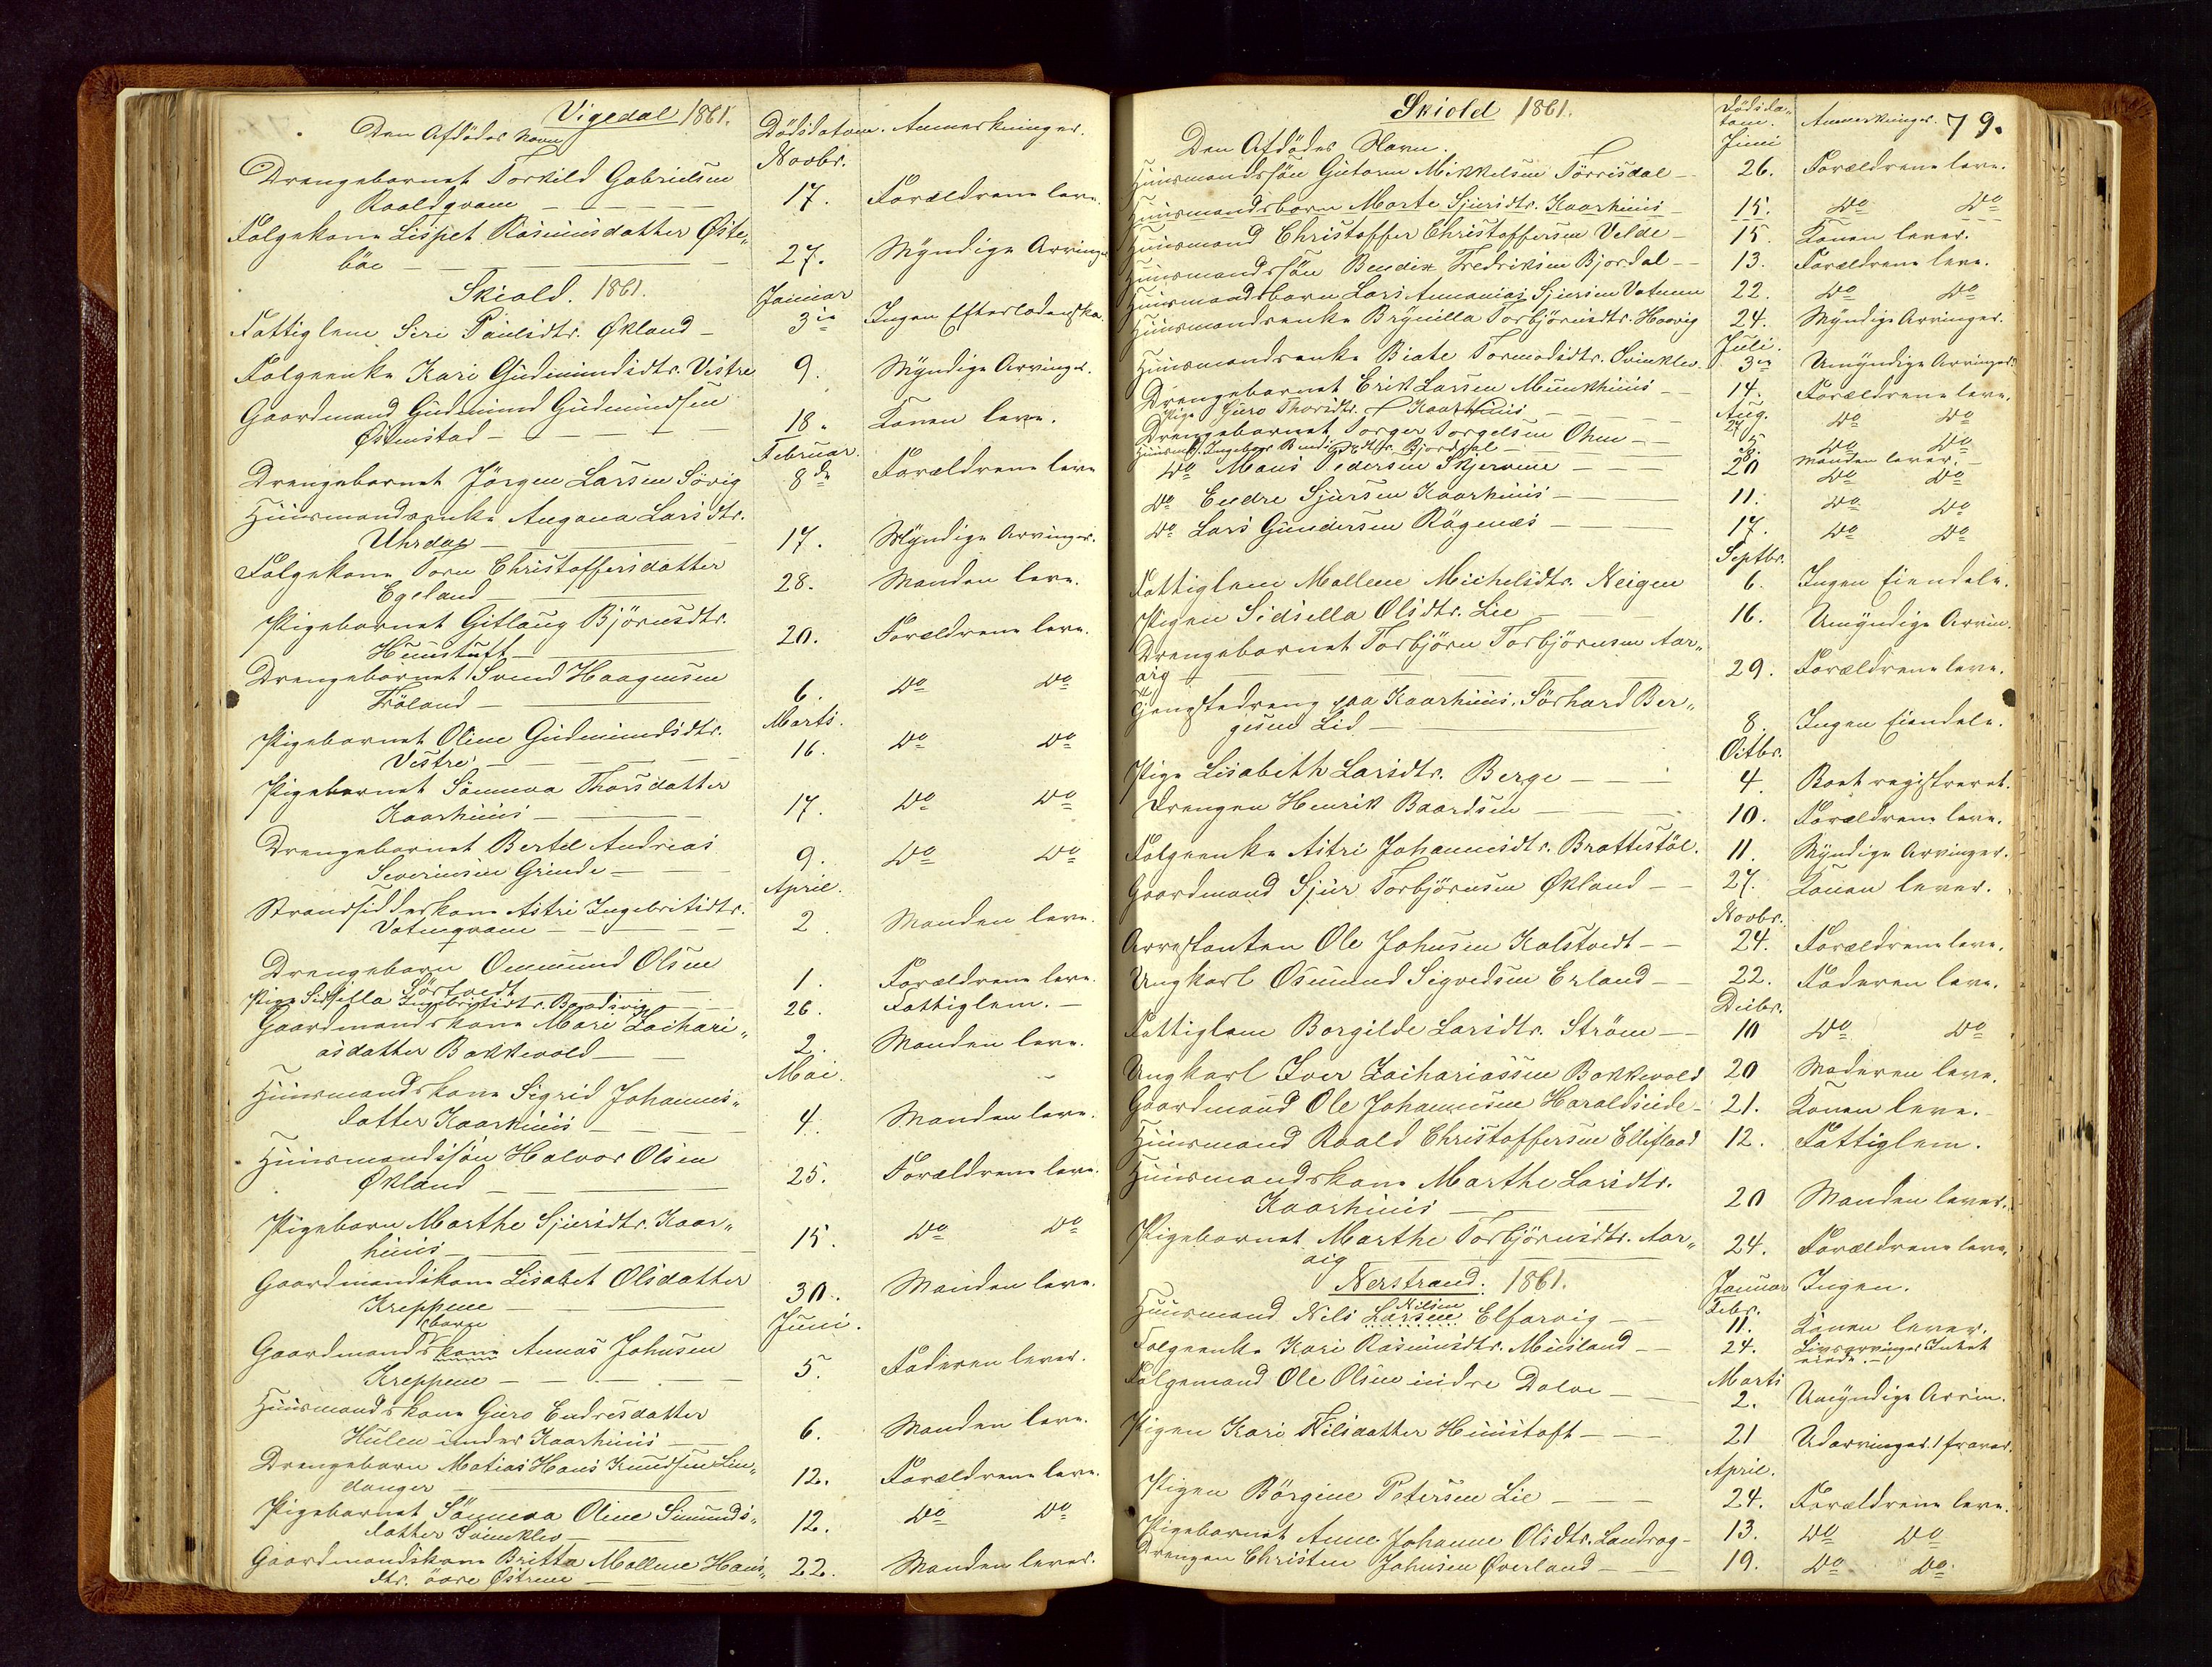 Vigedal 1861.
Den Afdödes Navn Dödsdatum. Anmerkninger.
Novbr.
Drengebarnet Torkild Gabrielsen
Raaldqvam — 17. Forældrene leve.
Folgekone Lispet Rasmusdatter Øste„
böe — 27. Myndige Arvinger
Skiold. 1861.
Januar
Fattiglem Siri Paulsdtr. Økland — 3die Ingen Efterladenska.
Folgeenke Kari Gudmundsdtr. Vistre 9. Myndige Arvinger.
Gaardmand Gudmund Gudmundsen
Ølmstad — 18. Konen leve.
Februar.
Drengebarnet Jörgen Larsen Sövig 8de Forældrene leve
Huusmandsenke Angana Larsdtr.
Uhrdal — 17. Myndige Arvinger.
Folgekone Torn Christoffersdatter
Egeland — 28. Manden leve.
Pigebarnet Gitlaug Björnsdtr.
Huustuft — 20. Forældrene leve.
Drengebarnet Svend Haagensen
Fröland — 6. Do Do
Marts.
Pigebarnet Oline Gudmundsdtr.
Vistre — 16. Do Do
Pigebarnet Sönneva Thorsdatter
Kaarhuus — 17. Do Do
Drengebarnet Bertel Andreas
Severinsen Grinde — 9. Do Do
April.
Strandsidderkone Astri Ingebritsdtr.
Vatneqvam — 2. Manden leve.
Drengebarn Ommund Olsen
Sörtvedt — 1. Forældrene leve.
Pige Sidsella Ingebrigtsdtr. Baadsvig — 26. Fattiglem. —
Gaardmandskone Mari Zachari„
asdatter Bakkevold — 2. Manden leve.
Mai.
Huusmandskone Sigrid Johannes„
datter Kaarhuus — 4. Manden leve.
Huusmandssön Halvor Olsen
Økland — 25. Forældrene leve.
Pigebarn Marthe Sjursdtr. Kaar„
huus — 15. Do Do
Gaardmandskone Lisabet Olsdatter
Kreppene — 30. Manden leve.
Juni.
barn
Gaardmandskone Annas Johnsen
Kreppene — 5. Faderen lever.
Huusmandskone Guro Endresdatter
Hulen under Kaarhuus — 6. Manden leve.
Drengebarn Matias Hans Knudsen Lin„
danger — 12. Forældrene leve.
Pigebarnet Sönneva Oline Simunds„
datter Svinklev — 12. Do Do
Gaardmandskone Britta Mallene Hans„
dtr. övre Østreme — 22. Manden lever.
Skiold 1861. 79.
Den Afdödes Navn. Dödsda„
tum. Anmerkninger.
Juni
Huusmandssön Gutorm Mikkelsen Törrisdal — 26. Forældrene leve.
Huusmandsbarn Marte Sjursdtr. Kaarhuus — 15. Do Do
Huusmand Christoffer Christoffersen Velde — 15. Konen lever.
Huusmandssön Bendix Fredriksen Bjordal — 13. Forældrene leve.
Huusmandsbarn Lars Ananias Sjursen Vatnem 22. Do Do
Huusmandsenke Brynilla Torbjörnsdtr. Haavig 24. Myndige Arvinger.
Juli.
Huusmandsenke Biate Tormodsdtr. Svinklev. 3die Umyndige Arvinger
Drengebarnet Erik Larsen Munkhuus — 14. Forældrene leve.
Aug.
Pige Guro Thorsdtr. Kaarhuus — 24 Do Do
Drengebarnet Torger Torgelsen Ohm — 5. Do Do
Huusmk. Ingeborg Bendixsdtr. Bjordal — 8. Manden lever. —
Do Mons Pedersen Skjervene — 20 Do Do
Do Endre Sjursen Kaarhuus — 11. Do Do
Do Lars Gundersen Rägenæs — 17. Do Do
Septbr.
Fattiglem Mallene Michelsdtr. Neigen 6. Ingen Eiendele.
Pigen Sidsella Olsdtr. Lie — 16. Umyndige Arvin.
Drengebarnet Torbjörn Torbjörnsen Aar„
vig — 29. Forældrene leve.
Tjenestedreng paa Kaarhuus, Sörhard Ber„
gesen Lid — 8. Ingen Eiendele.
Octbr.
Pige Lisabeth Larsdtr. Berge — 4. Boet registreret.
Drengen Henrik Baardsen — 10. Forældrene leve.
Folgeenke Astri Johannesdtr. Brattestöl. 11. Myndige Arvinger.
Gaardmand Sjur Torbjörnsen Økland — 27. Konen lever.
Novbr.
Arrestanten Ole Johnsen Kalstvedt — 24. Forældrene leve.
Ungkarl Osmund Sigvedsen Erland — 22. Faderen leve.
Decbr.
Fattiglem Borgilde Larsdtr. Ström — 10 Do Do
Ungkarl Iver Zachariassen Bakkevold 20 Moderen leve.
Gaardmand Ole Johannesen Haraldseide — 21. Konen leve.
Huusmand Roald Christoffersen Ellefstad 12. Fattiglem.
Huusmandskone Marthe Larsdtr.
Kaarhuus — 20 Manden lever.
Pigebarnet Marthe Torbjörnsdtr. Aar„
vig — 24. Forældrene leve.
Nerstrand. 1861. Januar Ingen.
Febr.
Nilsen
Huusmand Nils Larsen Elfarvig — 11. Konen lever.
Folgeenke Kari Rasmusdtr. Musland — 24. Livsarvinger Intet
eiende. —
Marts
Folgemand Ole Olsen indre Dalve — 2. Umyndige Arvin.
Pigen Kari Nilsdatter Huustoft — 21 Udarvinger
April.
Pigen Börgine Petersen Lie — 24. Forældrene leve.
Pigebarnet Anne Johanne Olsdtr. Landrag — 13. Do Do
Drengen Christen Johnsen Øverland — 19. Do Do.